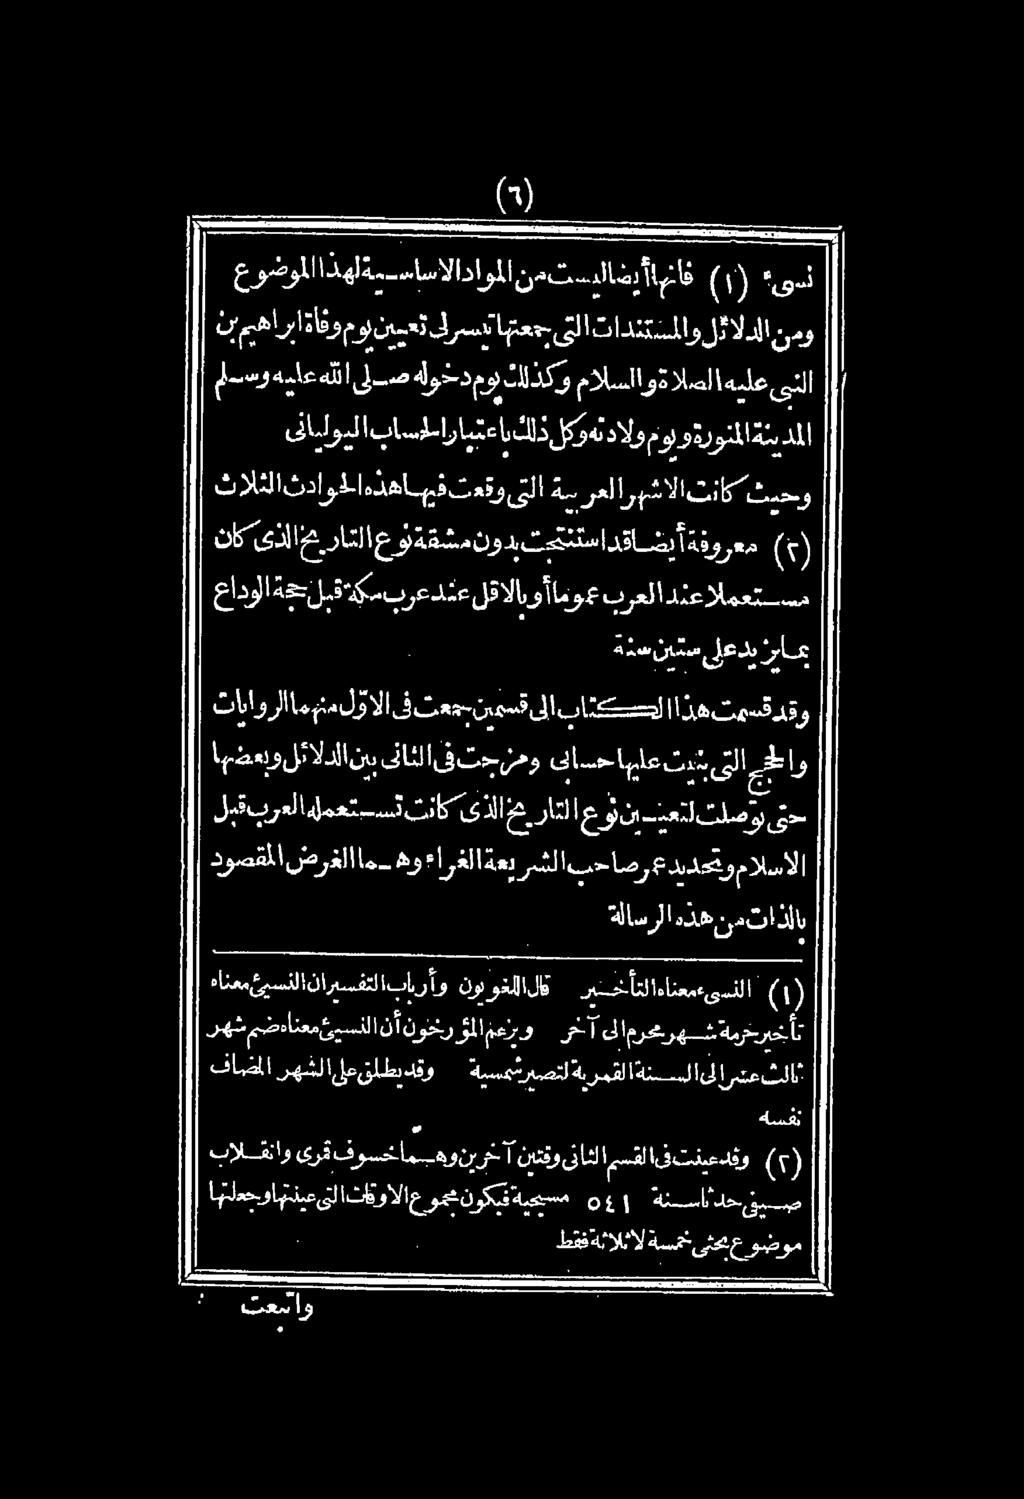 (٦)
نسىء (١) فانها أيضا ليست من المواد الاساسية لهذا الموضوع
ومن الدلائل والمستندات التى جمعتها تيسر لى تعيين يوم وفاة ابراهيم بن
النبى عليه الصلاة والسلام وكذلك يوم دخوله صلى الله عليه وسلم
المدينة المنورة ويوم ولادته وكل ذلك باعتبار الحساب اليوليانى
وحيث كانت الاشهر العربية التى وقعت فيها هذه الحوادث الثلاث
(٢) معروفة أيضا قد استنتجت بدون مشقة نوع التاريخ الذى كان
مستعملا عند العرب عموما أو بالاقل عند عرب مكة قبل حجة الوداع
بما يزيد على ستين سنة
وقد قسمت هذا الكتاب الى قسمين جمعت فى الاول منهما الروايات
والحجج التى بنيت عليها حسابى ومزجت فى الثانى بين الدلائل وبعضها
حتى توصلت لتعيين نوع التاريخ الذى كانت تستعمله العرب قبل
الاسلام وتحديد عمر صاحب الشريعة الغراء وهما الغرض المقصود
بالذات من هذه الرسالة
(١) النسىء معناه التأخير قال اللغويون وأرباب التفسير ان النسيئ معناه
تأخير حرمة شهر محرم الى آخر ويزعم المؤرخون أن النسيئ معناه ضم شهر
ثالث عشر الى السنة القمرية لتصير شمسية وقد يطلق على الشهر المضاف
نفسه
(٢) وقد عينت فى القسم الثانى وقتين آخرين وهما خسوف قمرى وانقلاب
صيفى حدثا سنة ٥٤١ مسيحية فيكون مجموع الاوقات التى عينتها وجعلتها
موضوع بحثى خمسة لا ثلاثة فقط
واتبعت